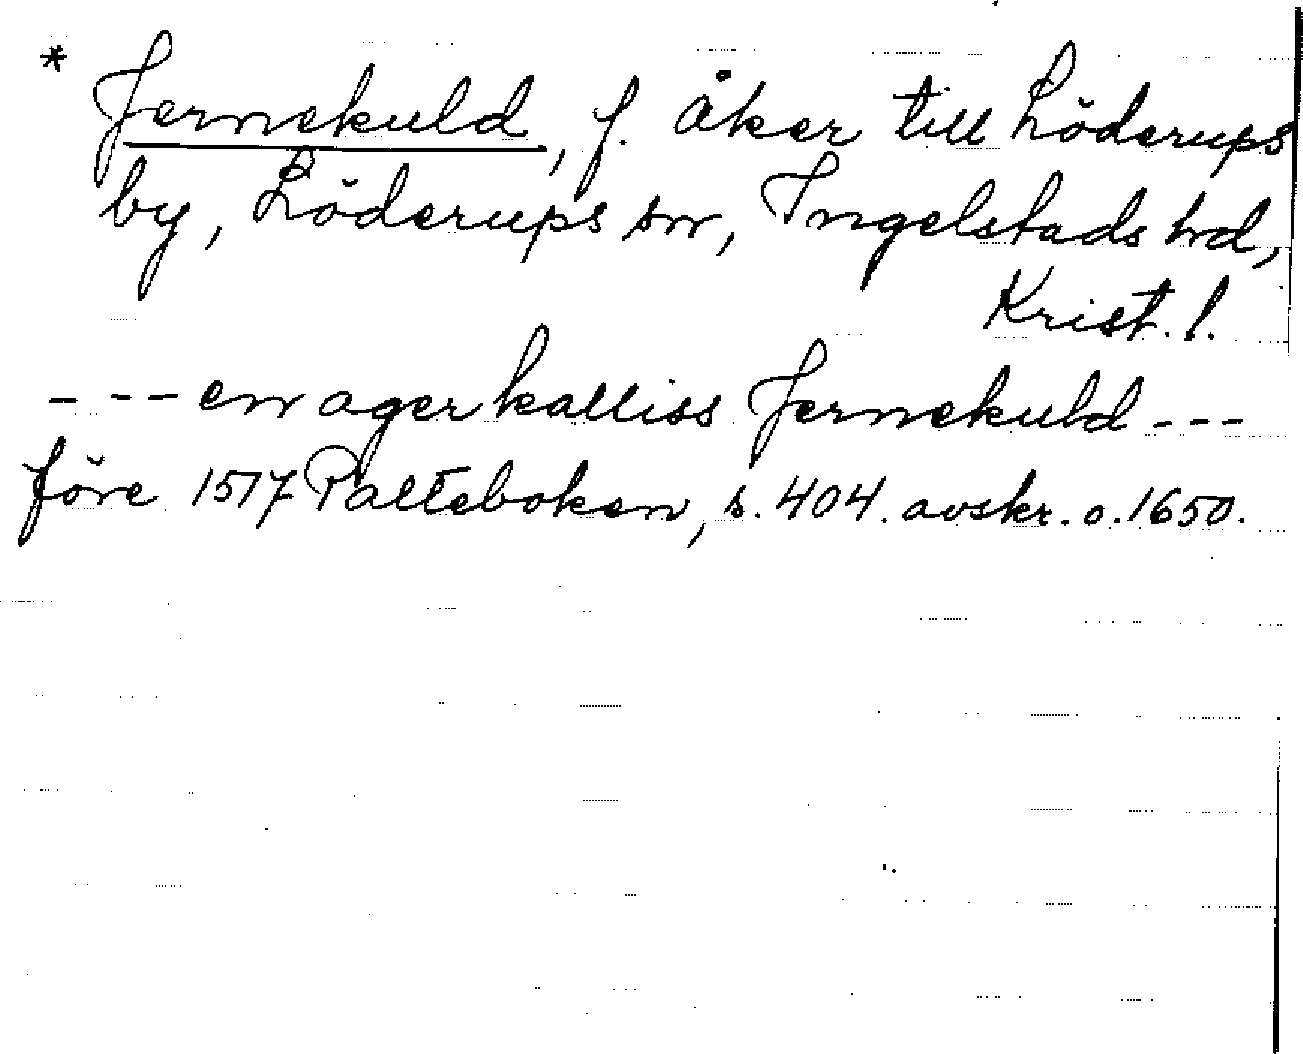 * Jernekuld, f. åker till Löderups
by, Löderups sn, Ingelstads hd,
Krist. l.
--- en ager kalliss Jernekuld ---
före 1517 Palteboken, s. 404. avskr. o. 1650.